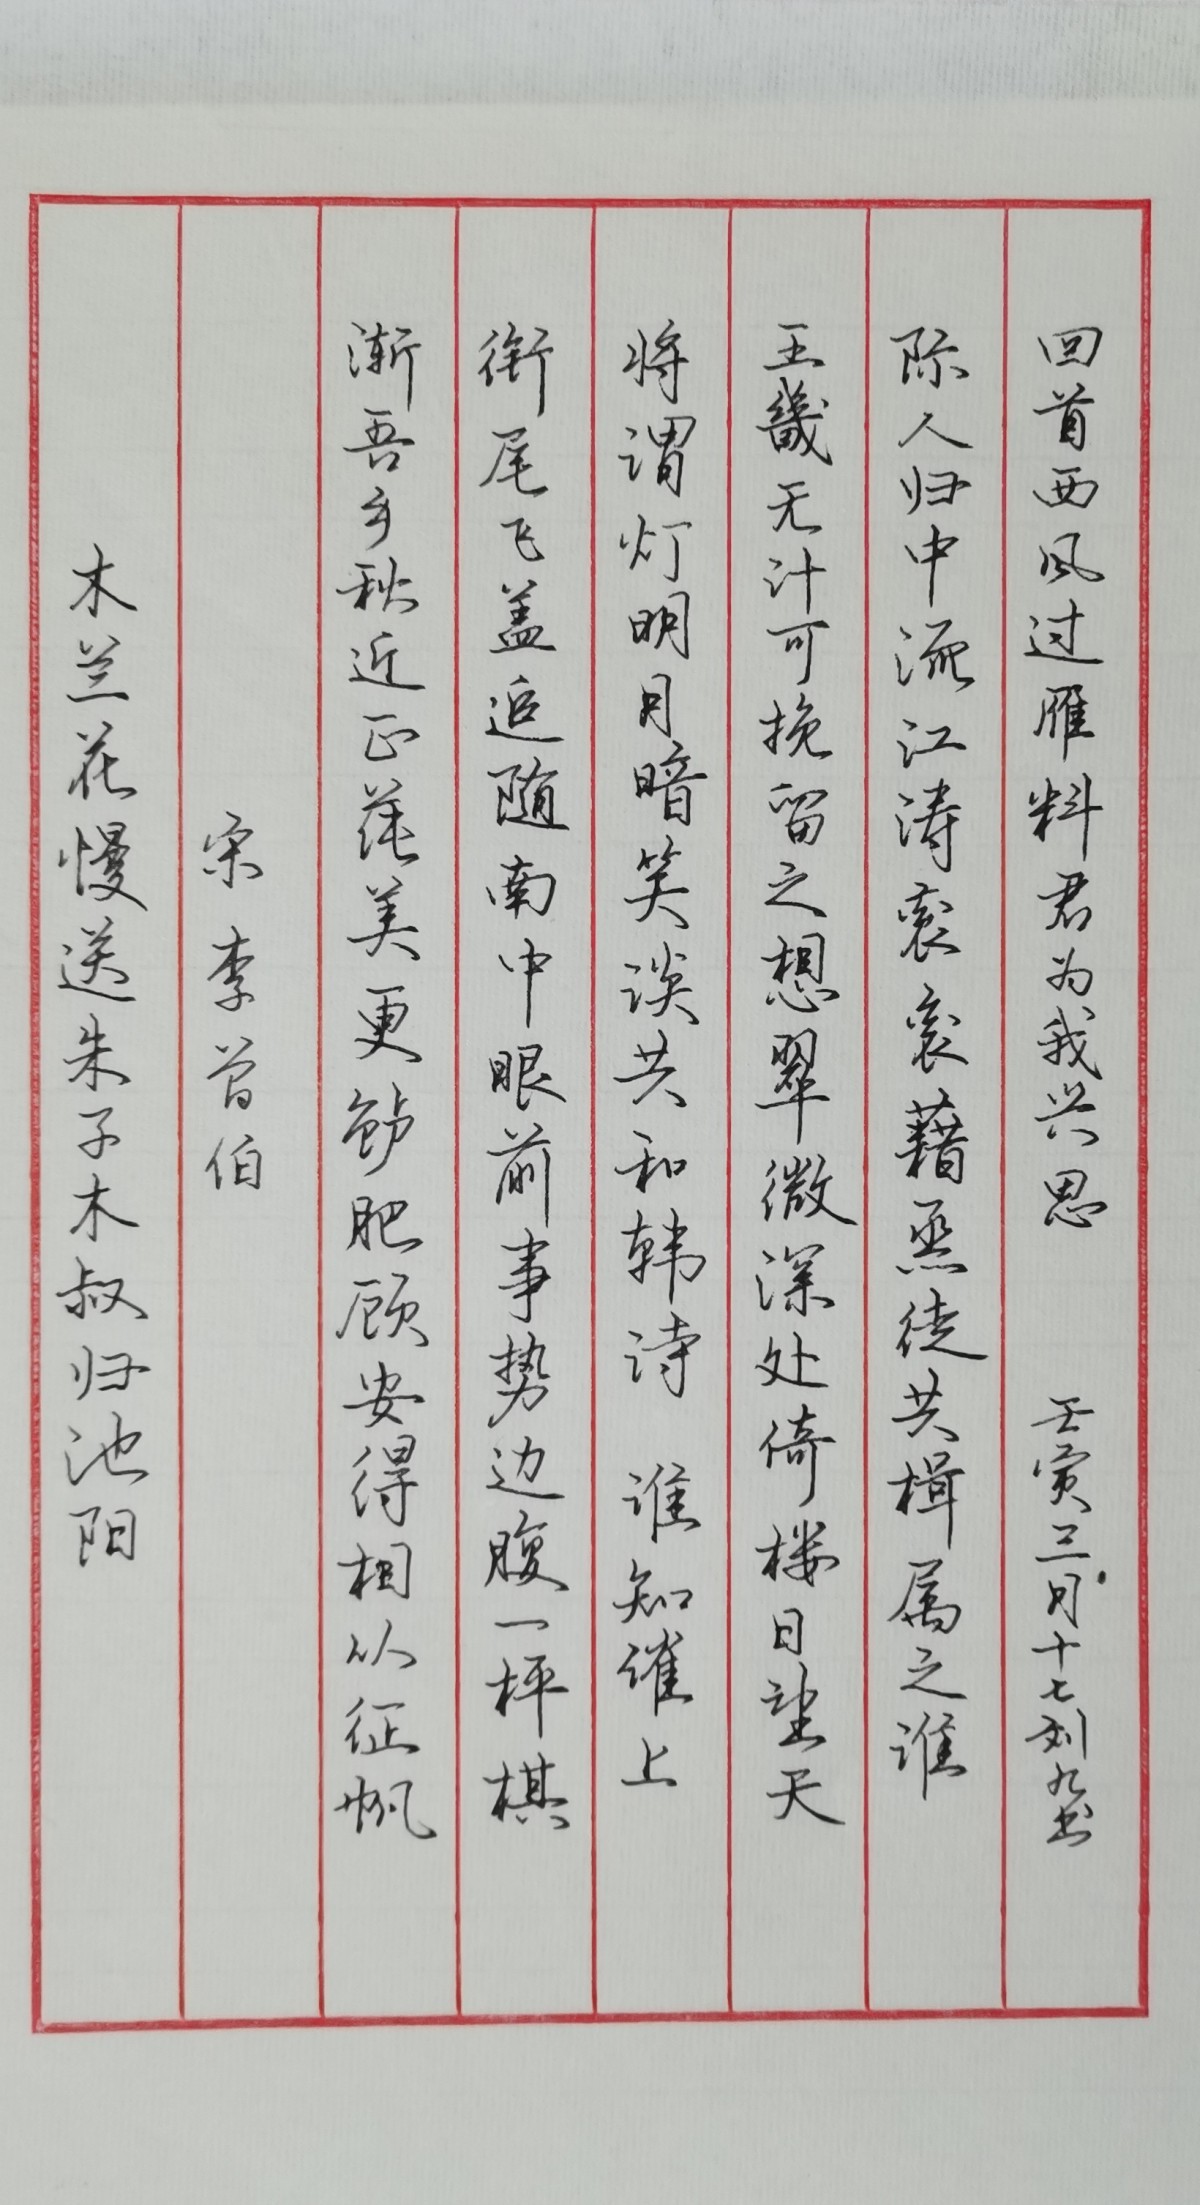 木兰花慢送朱子木叔归池阳
宋李曾伯
渐吾乡秋近正莼美更鲈肥顾安得相从征帆
衔尾飞盖追随南中眼前事势边腹一枰棋
将谓灯明月暗笑谈共和韩诗 谁知催上
王畿无计可挽留之想翠微深处倚楼日望天
际人归中流江涛衮衮藉烝徒共楫属之谁
回首西风过雁料君为我兴思 壬寅三月十七刘九书